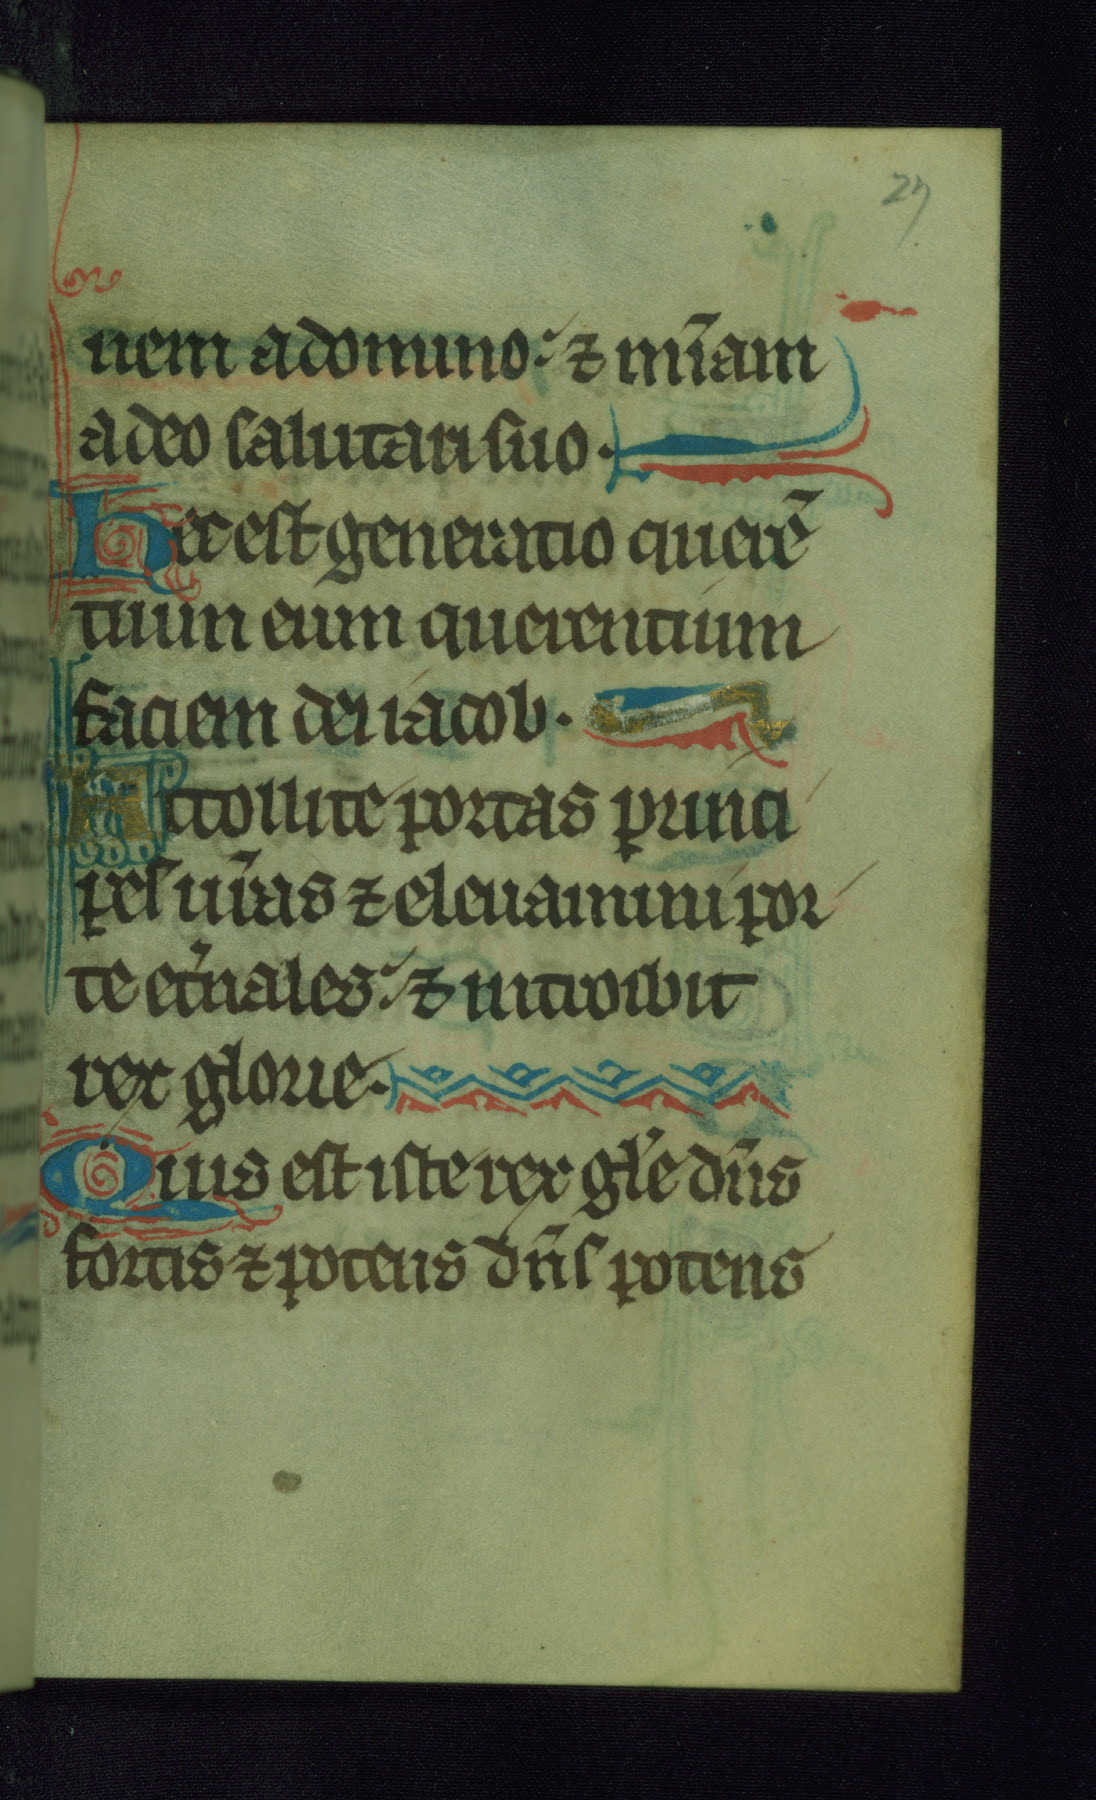 27
nem a domino: ⁊ mĩam
a deo salutari suo.
Hec est generatio querẽ
tiuun eum querentium
faciem dei iacob.
Attollite portas princi
pes ur̃as ⁊ eleuamini por
te et̃nales: ⁊ introibit
rex glorie.
Quis est iste rex gl̃e dñs
fortis ⁊ potens dñs potens